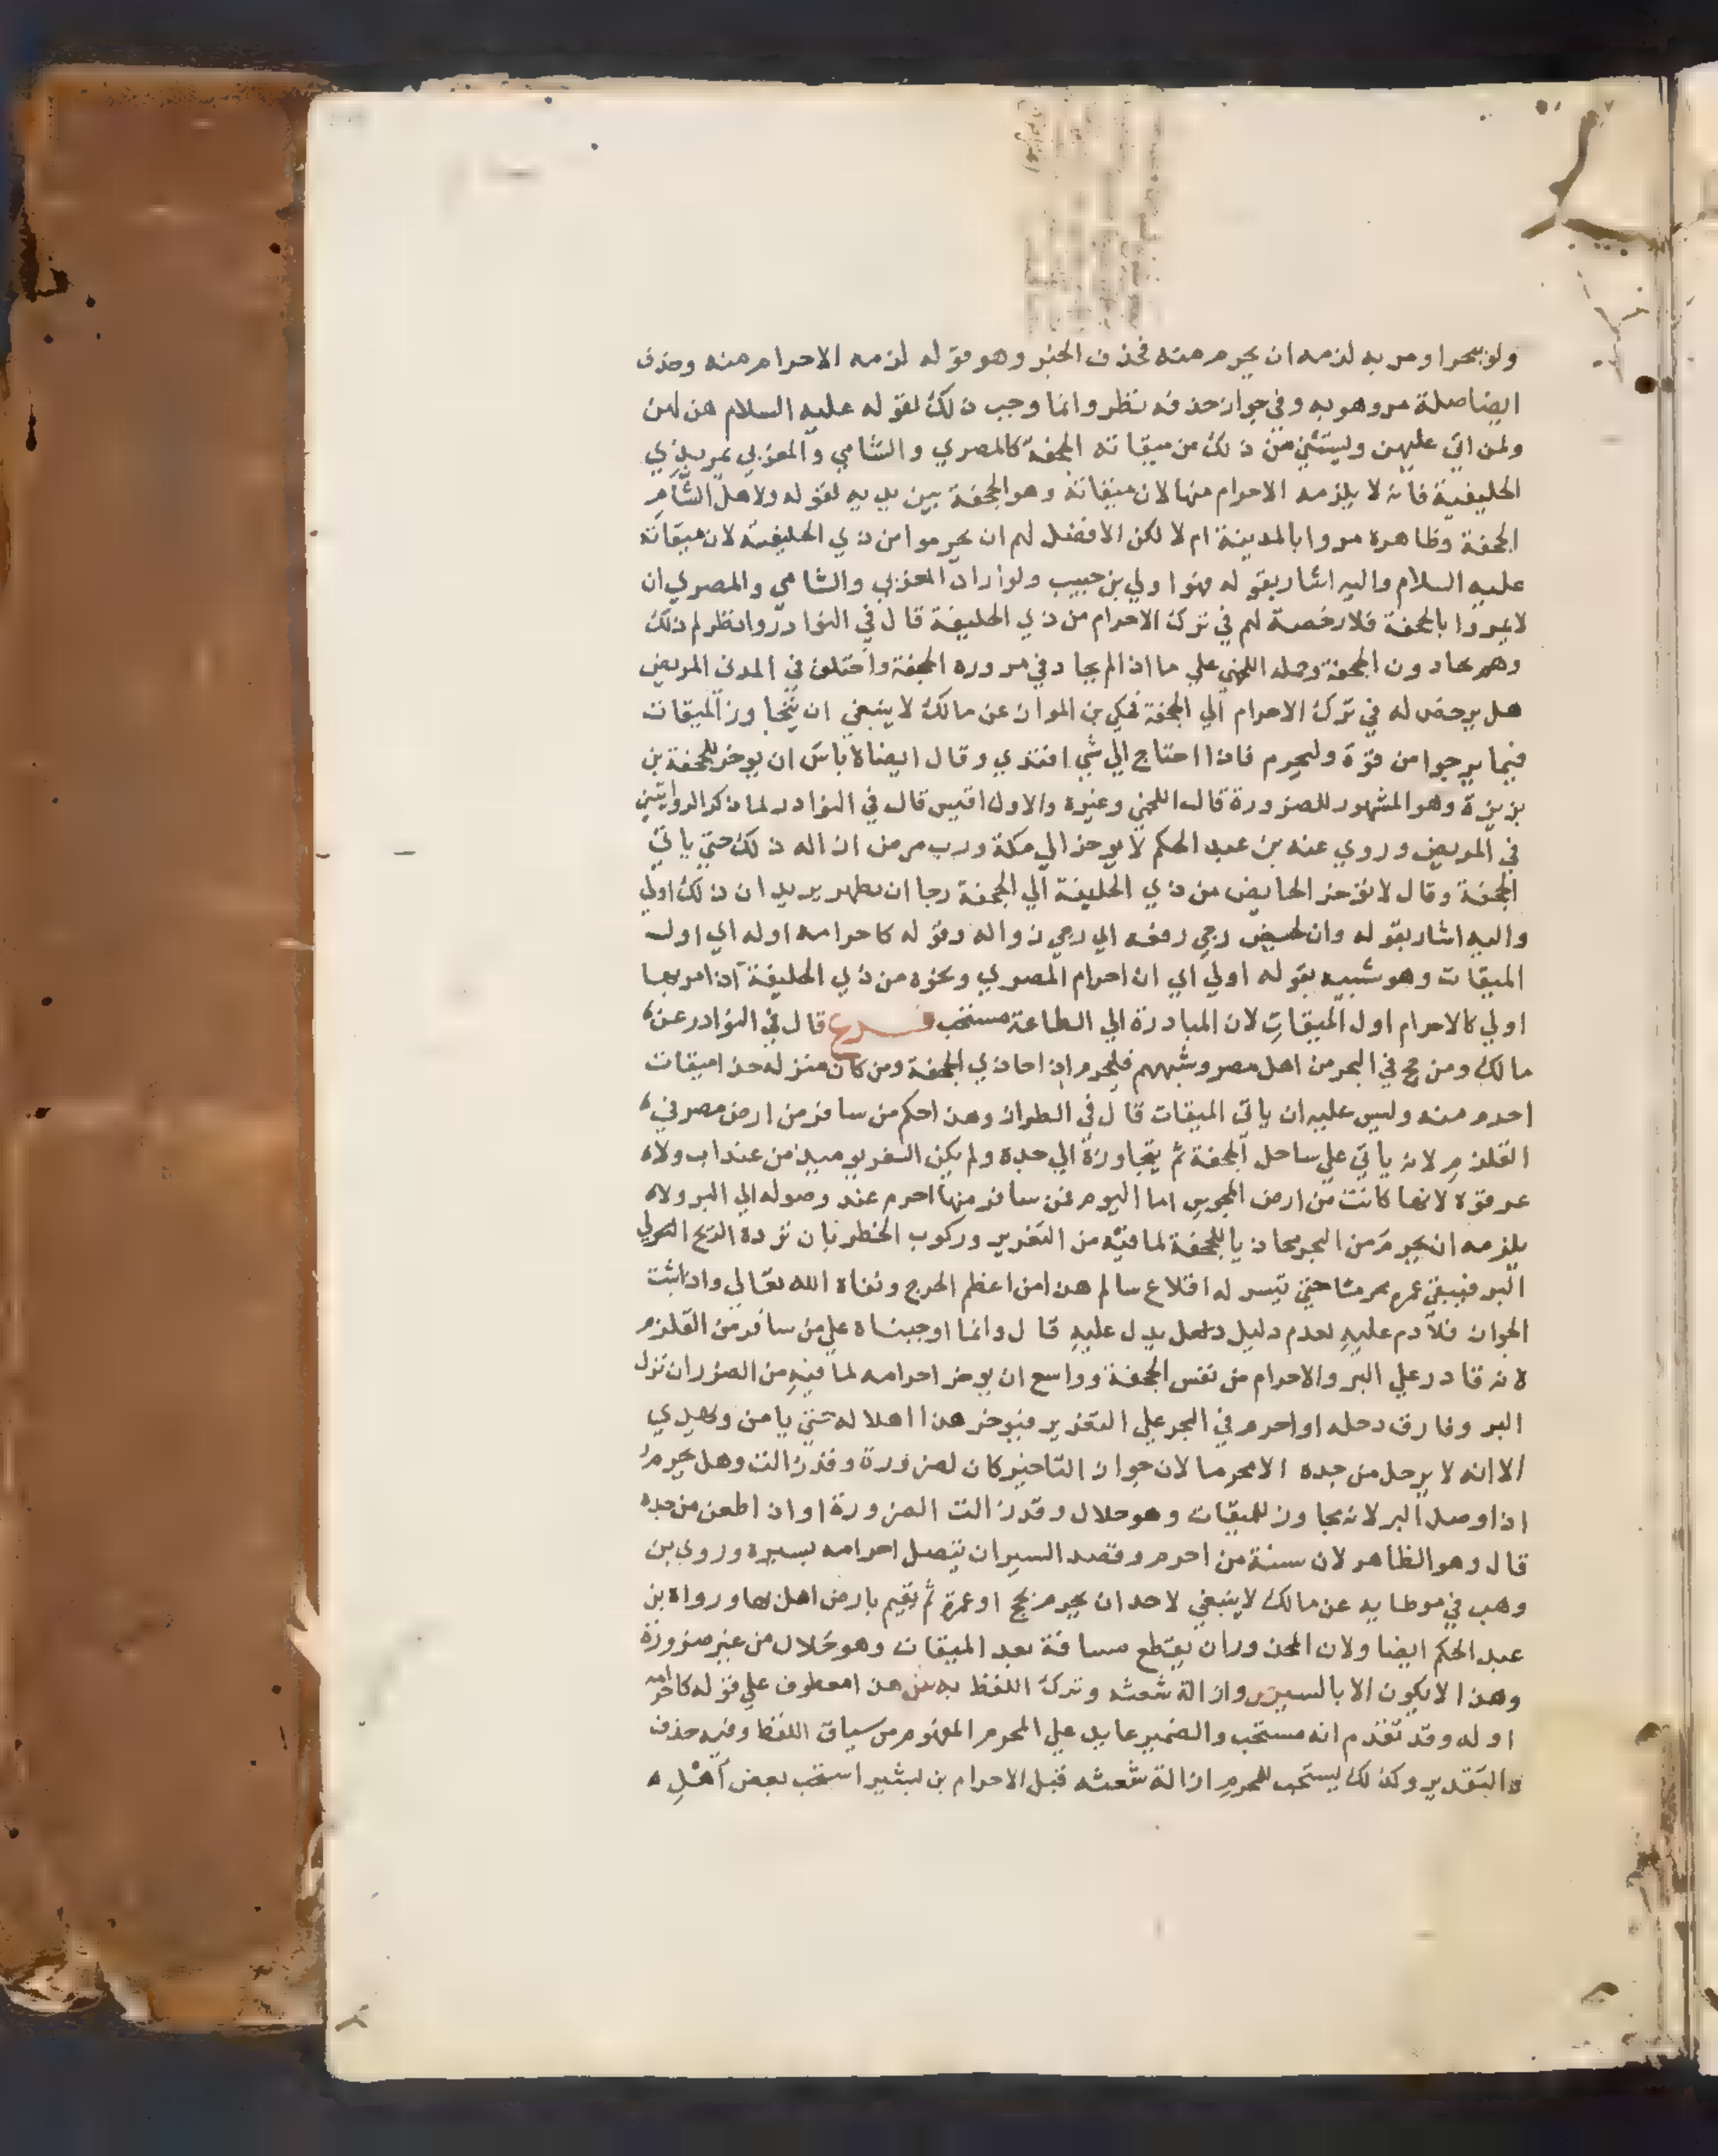 ولو ببحر او مر به لزمه ان يحرم منه فحذف الخبر وهو قوله لزمه الاحرام منه وحذف
ايضا صلة مر وهو به وفي جواز حذفه نظر وانما وجب ذلك لقوله عليه السلام هن لهن
ولمن اتى عليهن ويستثني من ذلك من ميقاته الجحفة كالمصري والشامي والمغربي يمر بذي
الحليفة فانه لا يلزمه الاحرام منها لان ميقاته وهو الجحفة بين يديه لقوله ولاهل الشام
الجحفة وظاهره مروا بالمدينة ام لا لكن الافضل لهم ان يحرموا من ذي الحليفة لان ميقاته
عليه السلام واليه اشار بقوله فهو اولي بن حبيب ولو اراد المغربي والشامي والمصري ان
لا يمروا بالجحفة فلا رخصة لهم في ترك الاحرام من ذي الحليفة قال في النوادر وانظر لم ذلك
وهم يحاذون الجحفة وحمله اللخمي علي ما اذا لم يحاذ في مروره الجحفة واختلف في المدني المريض
هل يرخص له في ترك الاحرام الي الجحفة فحكي بن المواز عن مالك لا ينبغي ان يتجاوز الميقات
فيما يرجوا من قوة وليحرم فاذا احتاج الي شي افتدي وقال ايضا لا باس ان يوخر للجحفة بن
بزيزة وهو المشهور للضرورة قال اللخمي وغيره والاول اقيس قال في النوادر لما ذكر الروايتين
في المريض وروي عنه بن عبد الحكم لا يوخر الي مكة ورب مرض ازاله ذلك حتي ياتي
الجحفة وقال لا تؤخر الحايض من ذي الحليفة الي الجحفة رجا ان تطهر يريد ان ذلك اولي
واليه اشار بقوله وان لحيض رجي رفعه اي رجي زواله وقوله كاحرامه اوله اي اول
الميقات وهو شبيه بقوله اولي اي ان احرام المصري ونحوه من ذي الحليفة اذا مر بها
اولي كالاحرام اول الميقات لان المبادرة الي الطاعة مستحب فرع قال في النوادر عن
مالك ومن حج في البحر من اهل مصر وشبههم فليحرم اذا حاذي الجحفة ومن كان منزله حذا ميقات
احرم منه وليس عليه ان ياتي الميقات قال في الطراز وهذا حكم من سافر من ارض مصر في
القلزم لانه ياتي علي ساحل الجحفة ثم يتجاوزه الي جدة ولم يكن السفر يوميذ من عيذاب ولاه
عرفوه لانها كانت من ارض المجوس اما اليوم فمن سافر منها احرم عند وصوله الي البر ولاه
يلزمه ان يحرم من البحر محاذيا للجحفة لما فيه من التغرير وركوب الخطر بان ترده الريح الي
البر فيبقي عمره محرما حتي تيسر له اقلاع سالم هذا من اعظم الحرج ونفاه الله تعالي واذا ثبت
الجواز فلا دم عليه لعدم دليل يدل عليه قال وانما اوجبناه علي من سافر من القلزم
لانه قادر علي البر والاحرام من نفس الجحفة وواسع ان يوخر احرامه لما فيه من الضرر ان نزل
البر وفارق رحله او احرم في البحر علي التغرير فيوخر هذا اهلاله حتي يامن ويهدي
الا انه لا يرحل من جده الا محرما لان جواز التاخير كان لضرورة وقد زالت وهل يحرم
اذا وصل البر لانه مجاوز للميقات وهو حلال وقد زالت الضرورة او اذا ظعن من جده
قال وهو الظاهر لان سنة من احرم وقصد السير ان يتصل احرامه بسيره وروي بن
وهب في موطايه عن مالك لا ينبغي لاحد ان يحرم بحج او عمرة ثم يقيم بارض اهل بها ورواه بن
عبد الحكم ايضا ولان المحذور ان يقطع مسافة بعد الميقات وهو حلال من غير ضرورة
وهذا لا يكون الا بالسير وازالة شعثه وترك اللفظ به ش هذا معطوف علي قوله كاحرامه
اوله وقد تقدم انه مستحب والضمير عايد علي المحرم المفهوم من سياق اللفظ وفيه حذف
التقدير وكذلك يستحب للمحرم ازالة شعثه قبل الاحرام بن بشير استحب بعض اهل